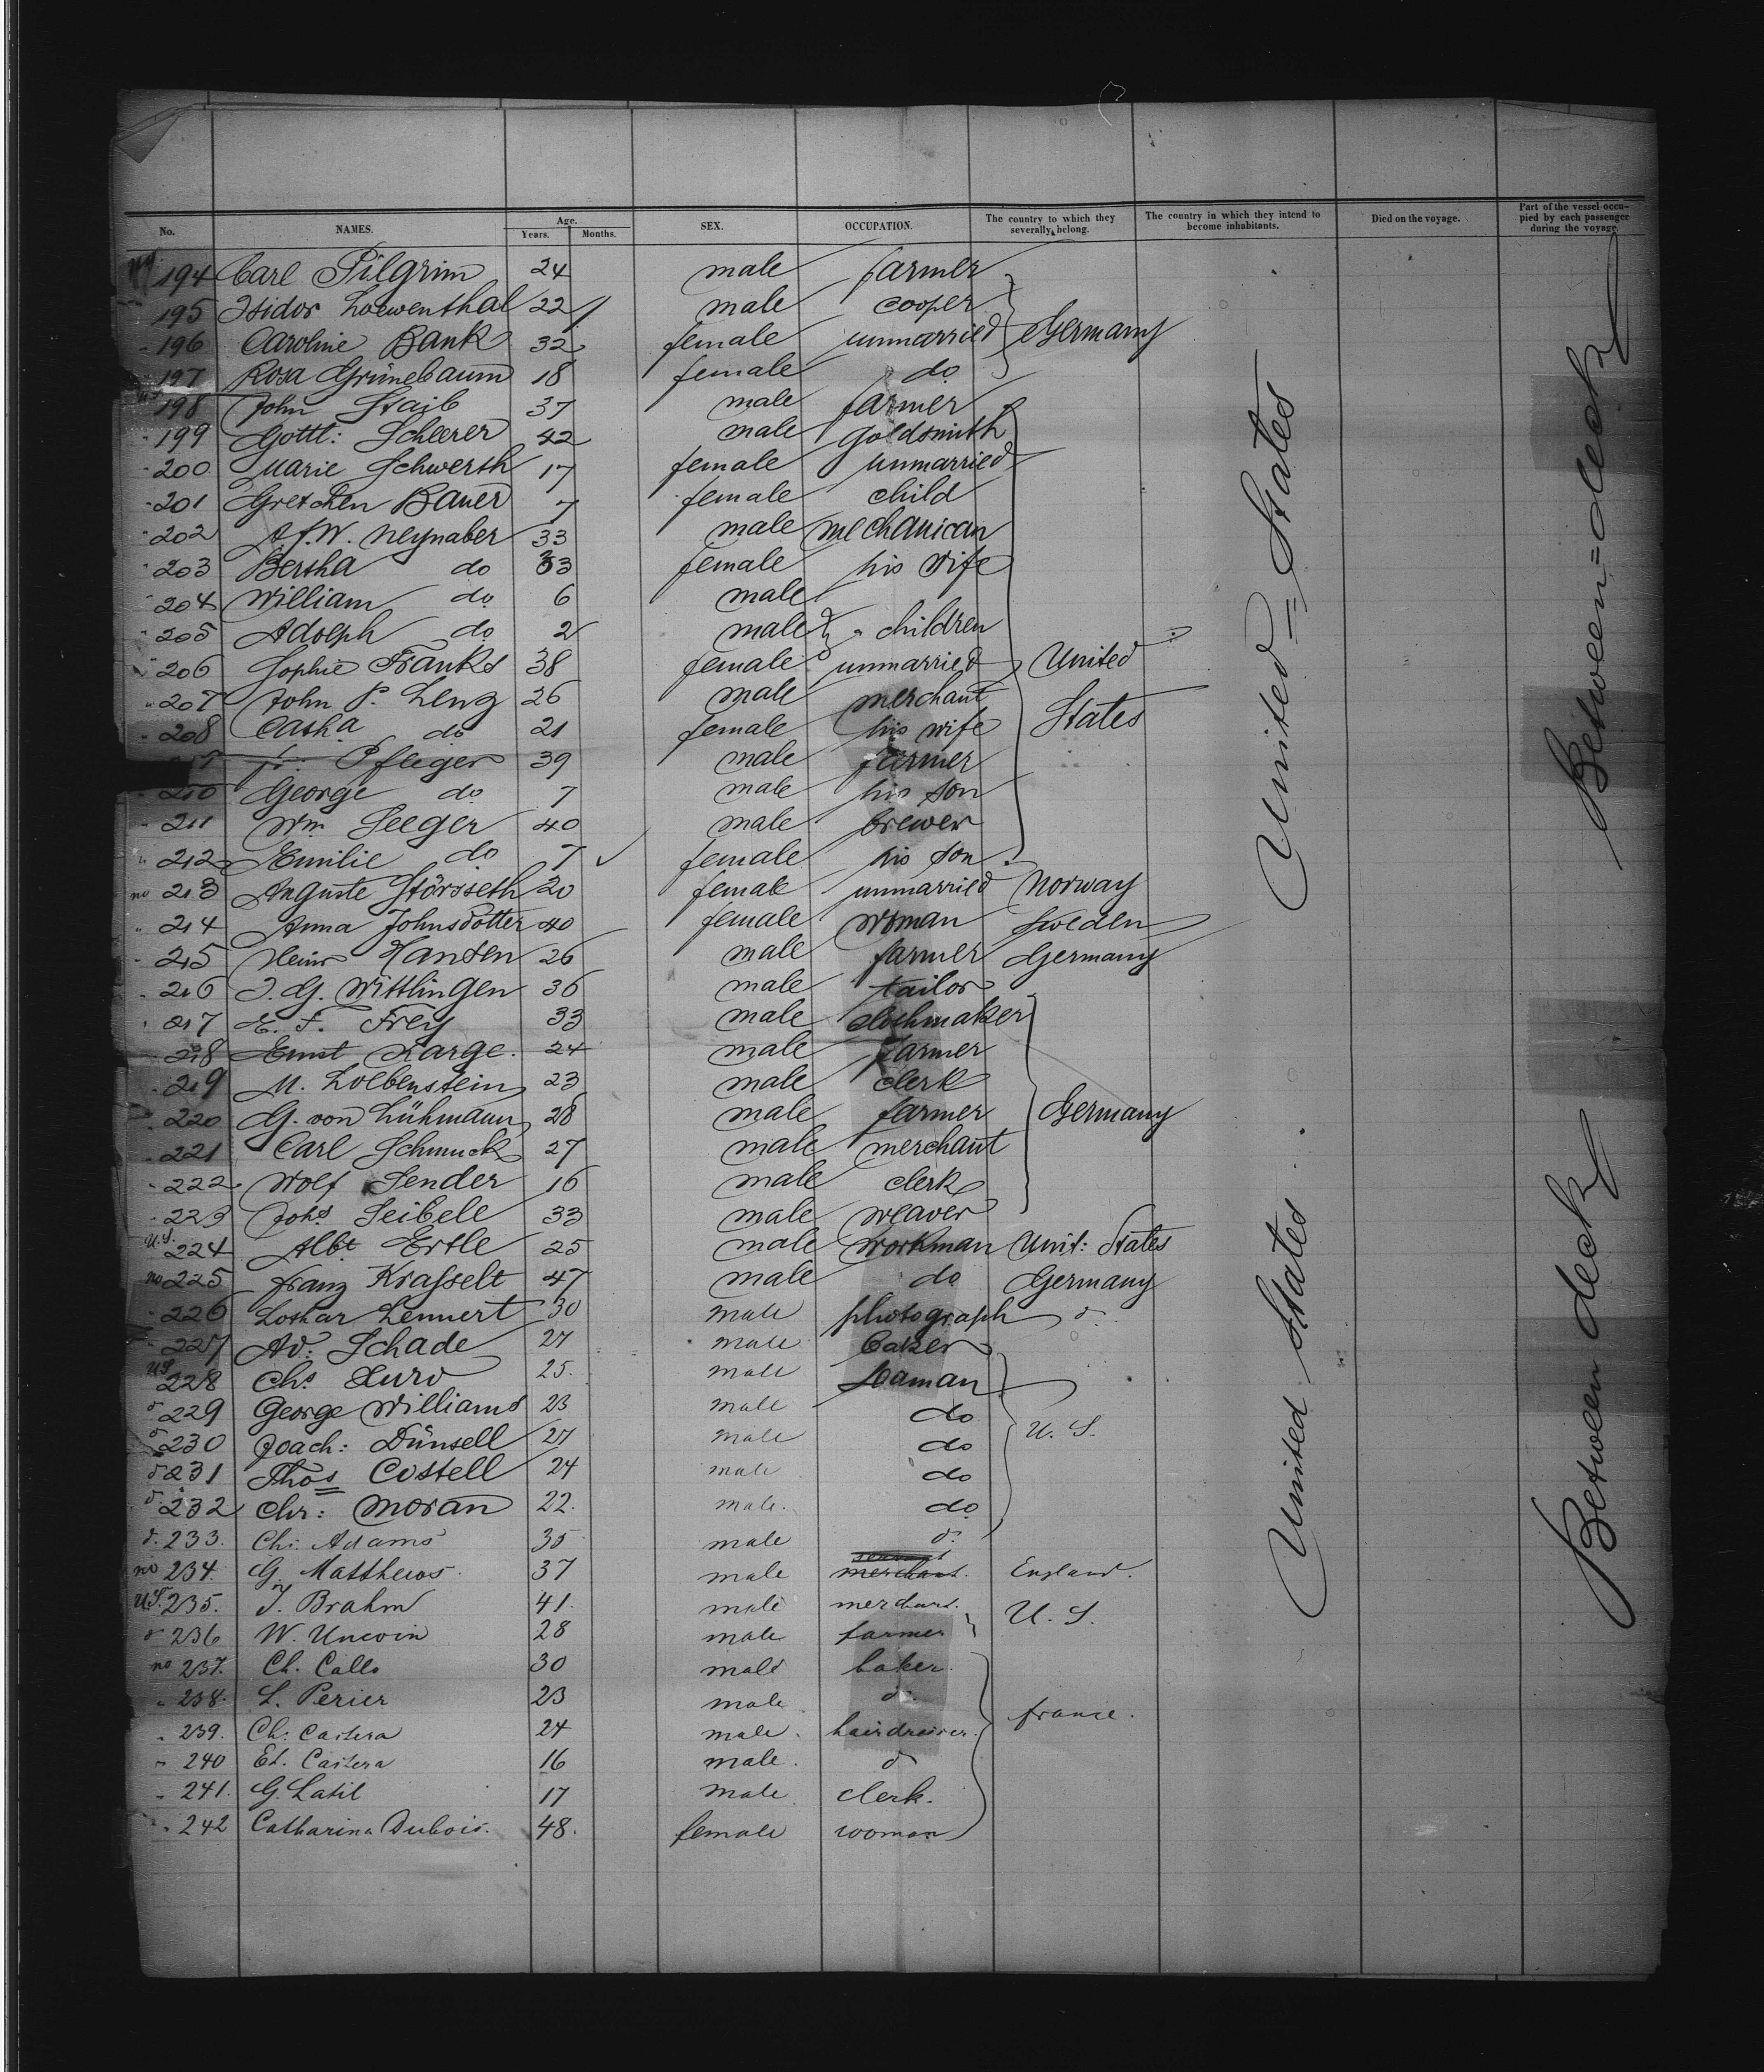 No. NAMES. Age. Years. Months. SEX. OCCUPATION. The country to which they severally belong. The country in which they intend to become inhabitants. Died on the voyage. Part of the vessel occupied by each passenger during the voyage.
194 Carl Pilgrim 24 male farmer
195 Isidor Loewenthal 22 male cooper
196 Caroline Bank 32 female unmarried Germany
197 Rosa Grünebaum 18 female do
198 John Staib 37 male farmer
199 Gottl: Scheerer 42 male goldsmith
200 Marie Schwerth 17 female unmarried
201 Gretchen Bauer 7 female child
202 A.f.W. Neynaber 33 male mechanican
203 Bertha do 33 female his wife
204 William do 6 male
205 Adolph do 2 male " children
206 Sophie Franks 38 female unmarried United
207 John P. Lenz 26 male merchant States
208 Casha do 21 female his wife
Pfleger 39 male farmer
210 George do 7 male his son
211 Wm Seeger 40 male brewer
212 Emilie do 7 female his son
no 213 Auguste Störsseth 20 female unmarried Norway
" 214 Anna Johnsdotter 40 female woman Sweden
" 215 Heinr Hansen 26 male farmer Germany
" 216 J. G. Wittlingen 36 male tailor
" 217 E. F. Frey 33 male clochmaker
218 Ernst Karge. 24 male farmer
219 M. Loebenstein 23 male clerk
220 G. von Lühmann 28 male farmer Germany
221 Carl Schmuck 27 male merchant
222 Wolf Sender 16 male clerk
223 Johs Seibele 33 male weaver
U.S. 224 Albt Ertle 25 male workman Unit: States
no 225 Franz Krasselt 47 male do Germany
226 Lothar Lennert 30 male photograph do
227 Ad: Schade 27 male baker
US 228 Chs 25. male seaman
do 229 George Williams 23 male do U. S.
do 230 Joach: Dünsell 27 male do
do 231 Thos Costell 24 male do
do 232 Chr: Moran 22. male. do
do 233. Ch: Adams 35 male do
no 234. G. Matthews. 37 male servant merchant. England.
U.S. 235. J. Brahm 41. male merchant. U. S.
do 236 W. Unwin 28 male farmer
no 237. Ch. Calls 30 male baker.
" 238. L. Perier 23 male do
" 239. Ch: Castera 24 male. hairdresser. france.
" 240 Et. Castera 16 male. do
" 241. G. Latil 17 male. clerk.
" 242 Catharina Dubois. 48. female woman
United = States
United States
Between = deck
Between deck